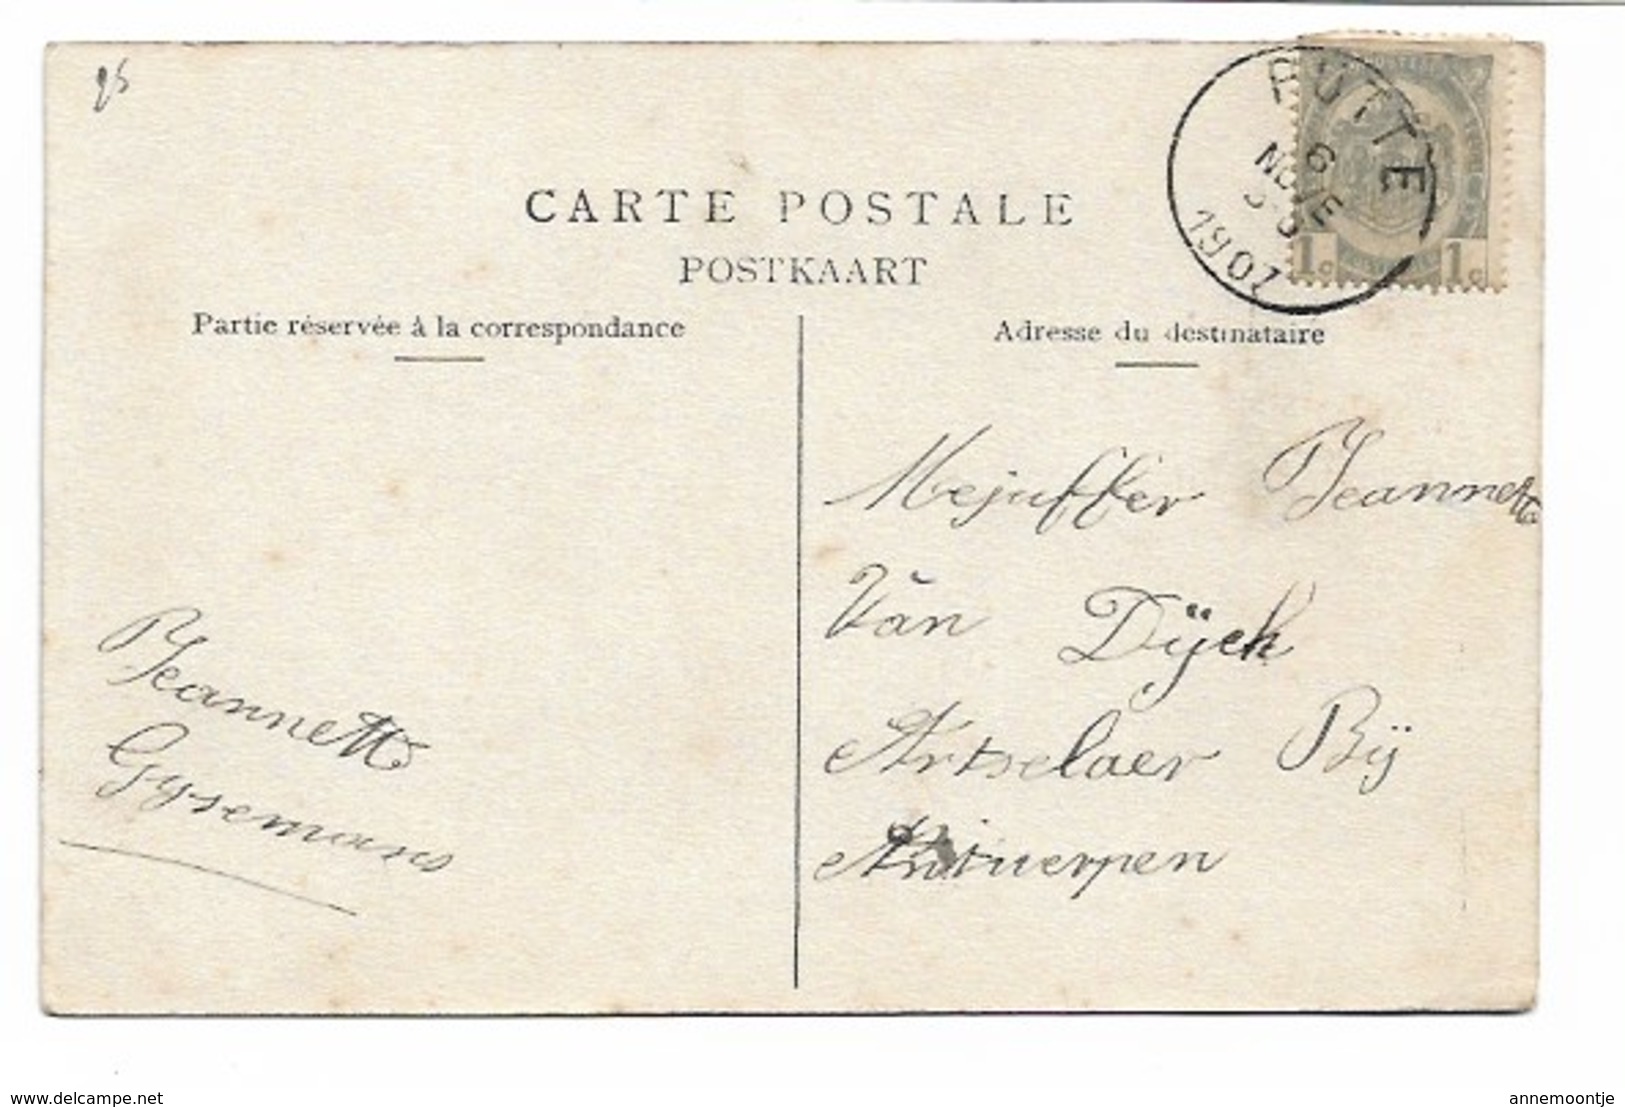 25
CARTE POSTALE
POSTKAART
PUTTE
6
1907
1c 1c
Partie réservée à la correspondance
Adresse du destinataire
Mejuffer Jeannette
Van Dÿck
Artselaer Bÿ
Antwerpen
Jeannette
Gysemans
www.delcampe.net
annemoontje